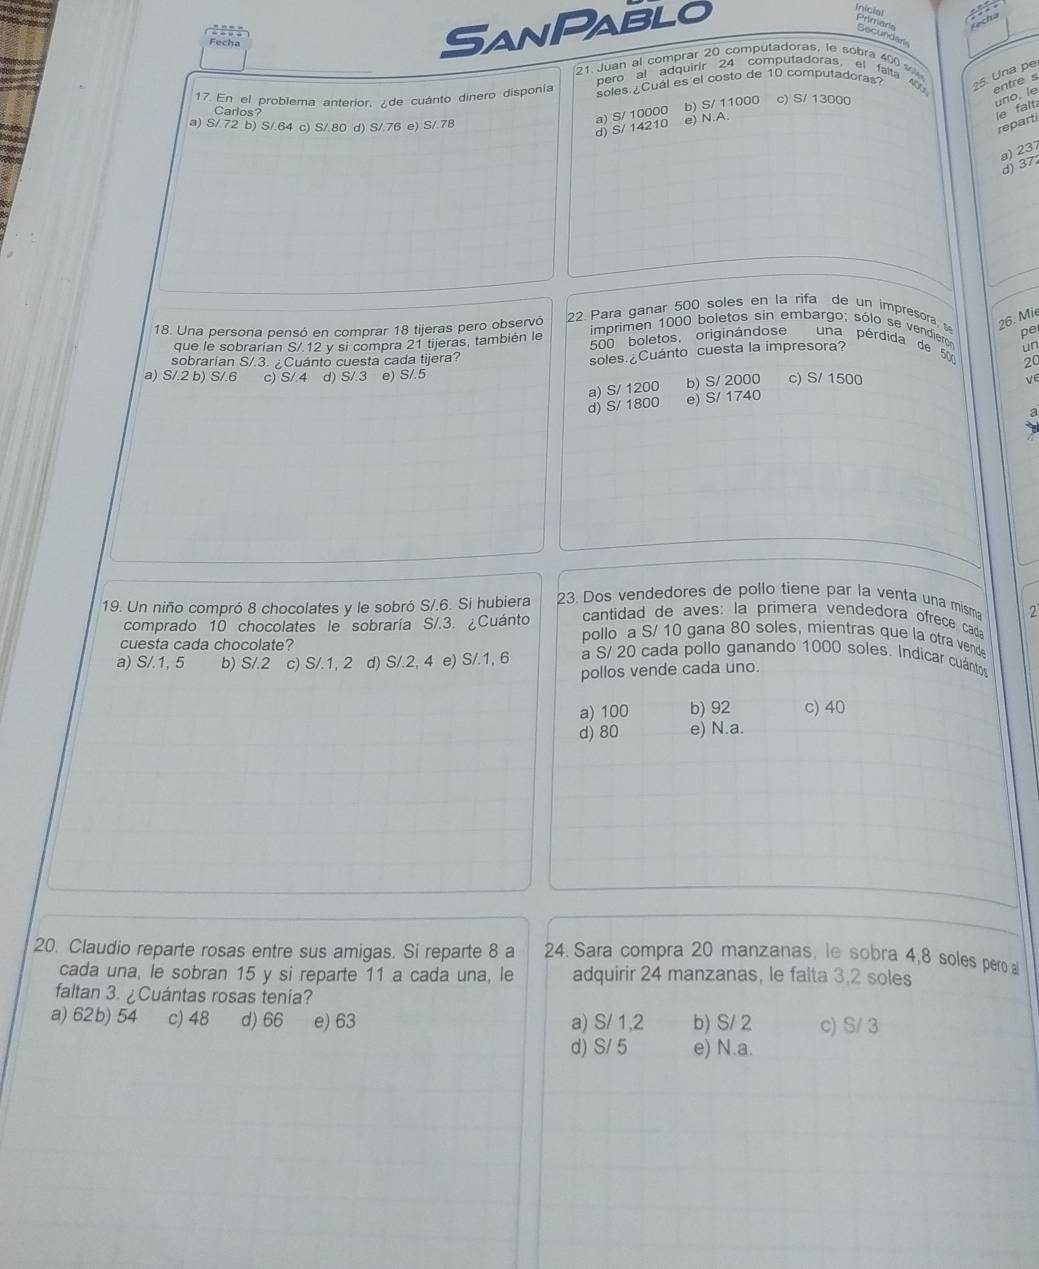 SANPABLO
Inicial
Primaria
Secundaria
Fecha
Fecha
17. En el problema anterior, ¿de cuánto dinero disponía
Carlos?
a) S/.72 b) S/.64 c) S/.80 d) S/.76 e) S/.78
18. Una persona pensó en comprar 18 tijeras pero observó
que le sobrarían S/.12 y si compra 21 tijeras, también le
sobrarían S/.3. ¿Cuánto cuesta cada tijera?
a) S/.2 b) S/.6 c) S/.4 d) S/.3 e) S/.5
19. Un niño compró 8 chocolates y le sobró S/.6. Si hubiera
comprado 10 chocolates le sobraría S/,3. ¿Cuánto
cuesta cada chocolate?
a) S/.1, 5 b) S/.2 c) S/.1, 2 d) S/.2, 4 e) S/.1, 6
20. Claudio reparte rosas entre sus amigas. Si reparte 8 a
cada una, le sobran 15 y si reparte 11 a cada una, le
faltan 3. ¿Cuántas rosas tenía?
a) 62b) 54 c) 48 d) 66 e) 63
21. Juan al comprar 20 computadoras, le sobra 400 soles
pero al adquirir 24 computadoras, el falta 4000
soles.¿Cuál es el costo de 10 computadoras?
a) S/ 10000 b) S/ 11000 c) S/ 13000
d) S/ 14210 e) N.A.
22. Para ganar 500 soles en la rifa de un impresora, se
imprimen 1000 boletos sin embargo; sólo se vendieron
500 boletos, originándose una pérdida de 500
soles.¿Cuánto cuesta la impresora?
a) S/ 1200 b) S/ 2000 c) S/ 1500
d) S/ 1800 e) S/ 1740
23. Dos vendedores de pollo tiene par la venta una misma
cantidad de aves: la primera vendedora ofrece cada
pollo a S/ 10 gana 80 soles, mientras que la otra vende
a S/ 20 cada pollo ganando 1000 soles. Indicar cuántos
pollos vende cada uno.
a) 100 b) 92 c) 40
d) 80 e) N.a.
24. Sara compra 20 manzanas, le sobra 4,8 soles pero al
adquirir 24 manzanas, le falta 3,2 soles
a) S/ 1,2 b) S/ 2 c) S/ 3
d) S/ 5 e) N.a.
25. Una pe
entre s
uno, le
le falta
reparti
a) 237
d) 372
26. Mie
pe
un
20
ve
a
2